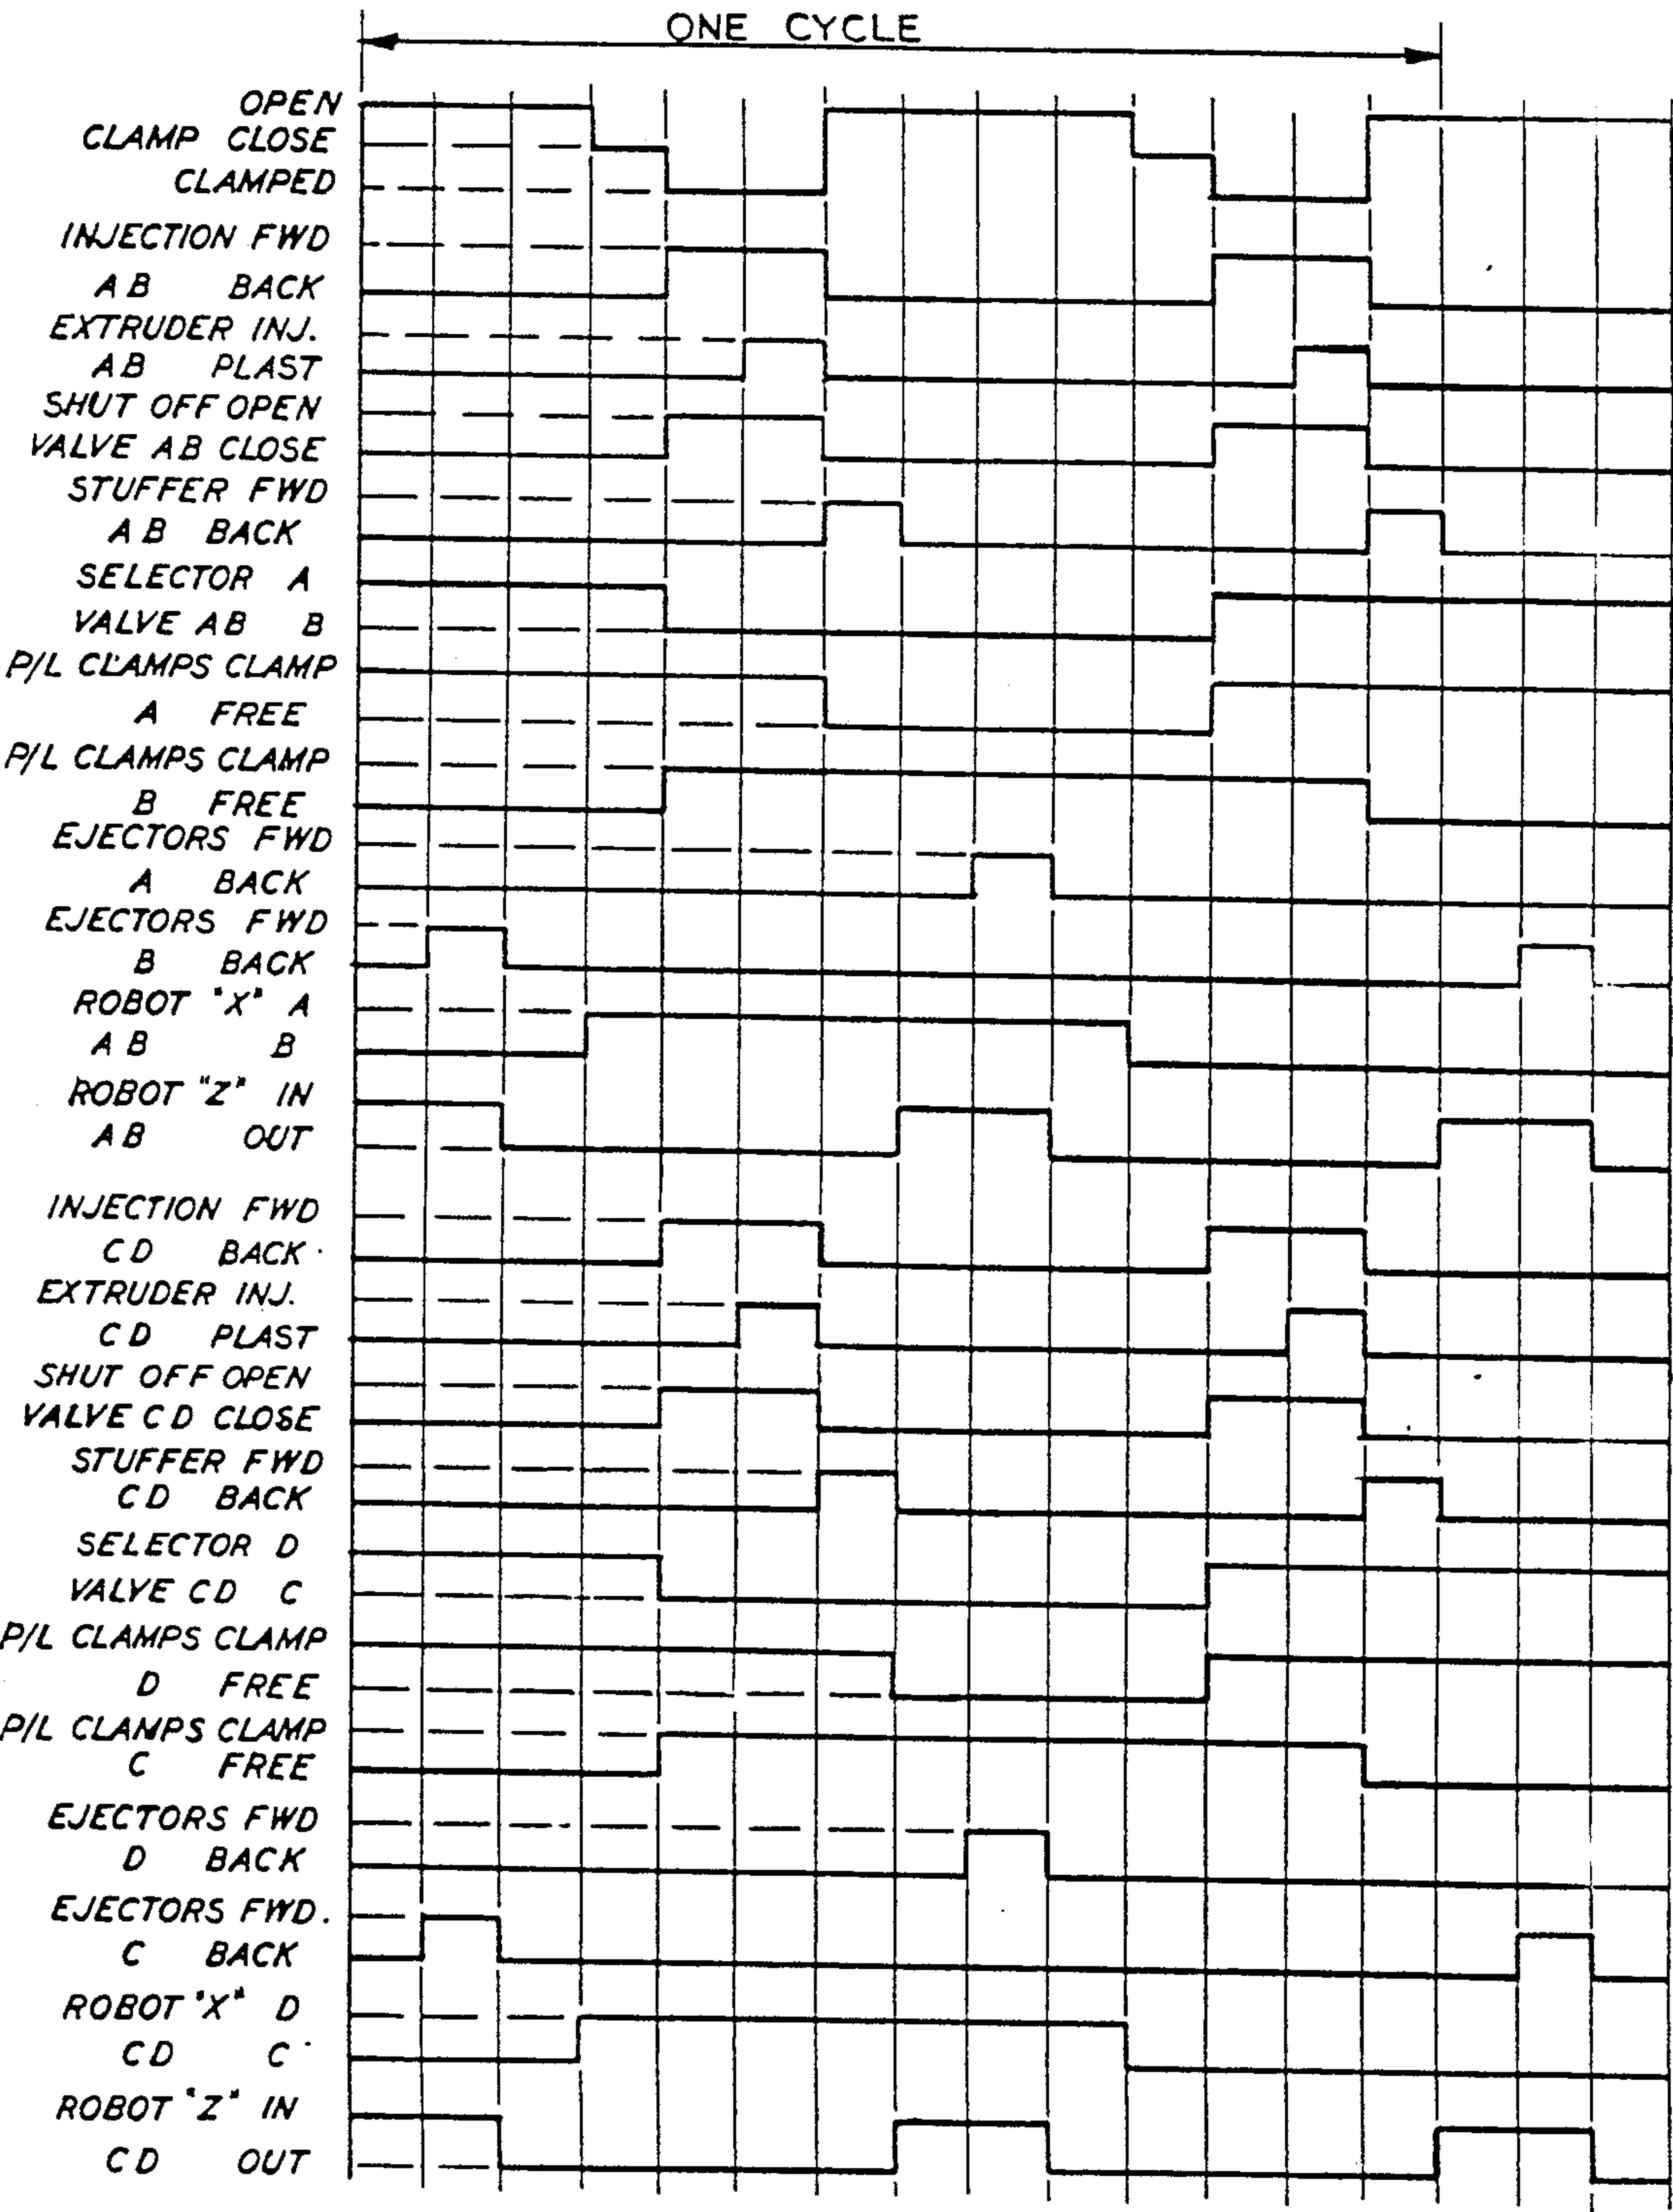 ONE CYCLE
OPEN
CLAMP CLOSE
CLAMPED
INJECTION FWD
AB BACK
EXTRUDER INJ.
AB PLAST
SHUT OFF OPEN
VALVE AB CLOSE
STUFFER FWD
AB BACK
SELECTOR A
VALVE AB B
P/L CLAMPS CLAMP
A FREE
P/L CLAMPS CLAMP
B FREE
EJECTORS FWD
A BACK
EJECTORS FWD
B BACK
ROBOT "X" A
AB B
ROBOT "Z" IN
AB OUT
INJECTION FWD
CD BACK
EXTRUDER INJ.
CD PLAST
SHUT OFF OPEN
VALVE CD CLOSE
STUFFER FWD
CD BACK
SELECTOR D
VALVE CD C
P/L CLAMPS CLAMP
D FREE
P/L CLAMPS CLAMP
C FREE
EJECTORS FWD
D BACK
EJECTORS FWD.
C BACK
ROBOT "X" D
CD C
ROBOT "Z" IN
CD OUT